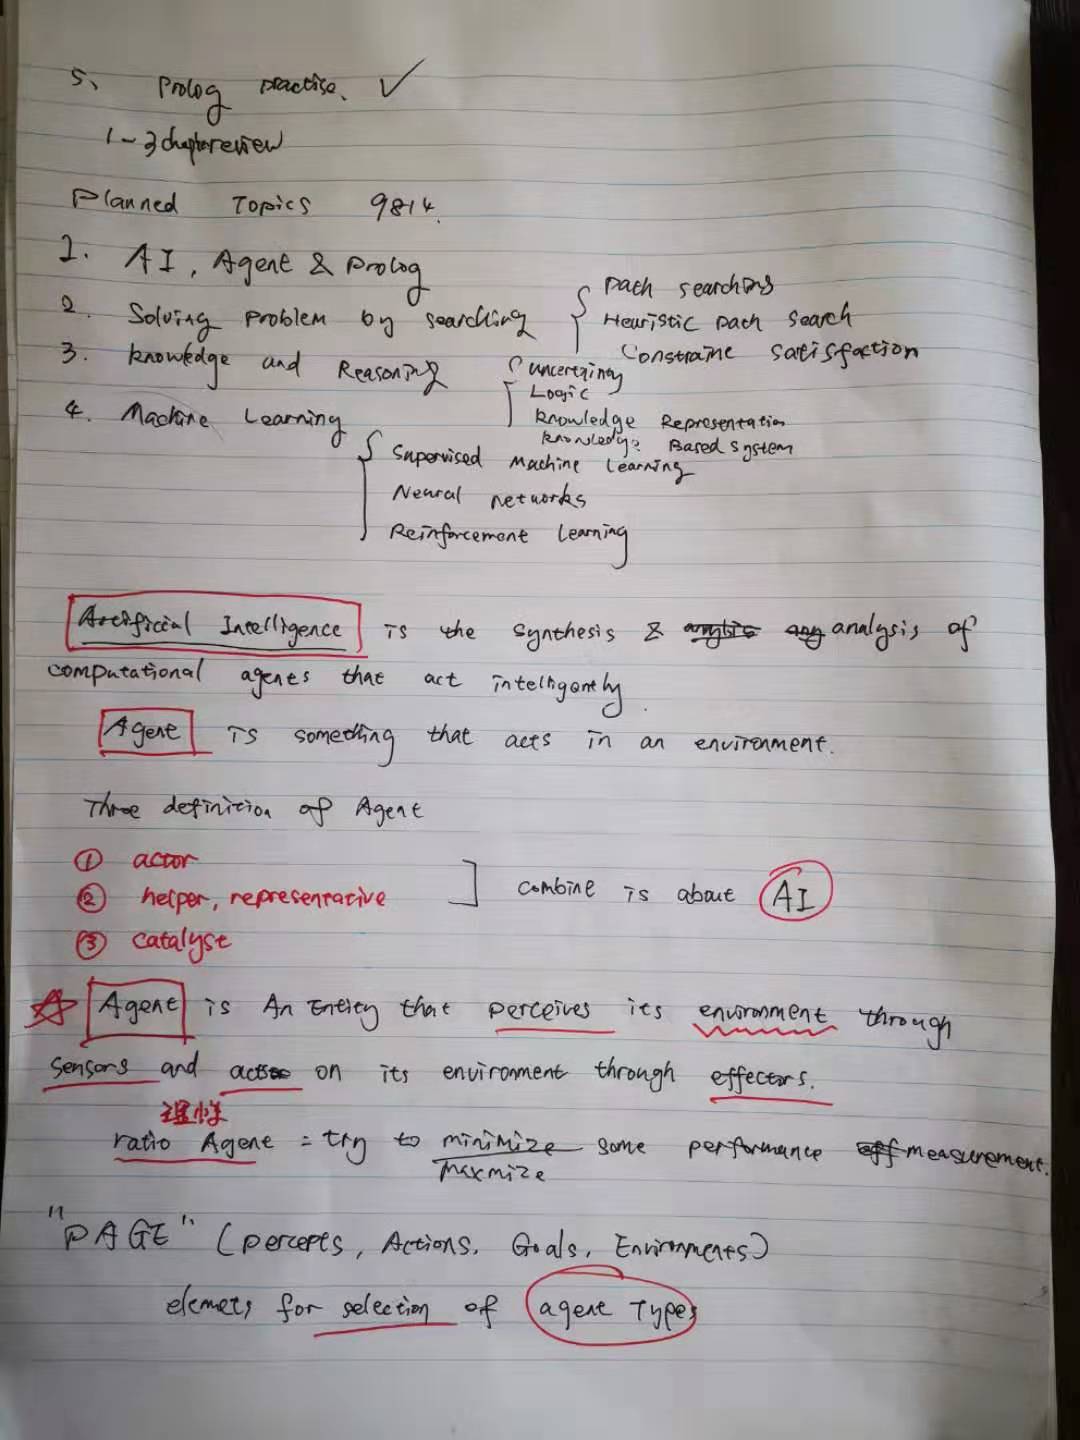 5、 Prolog practise、 ✓
1-3 chapter review
Planned Topics 9814.
1. AI, Agent & Prolog
2. Solving problem by searching
path searching
Heuristic path search
Constraine satisfaction
3. knowledge and Reasoning
uncertainty
Logic
knowledge Representation
knowledge Based system
4. Machine Learning
Supervised Machine Learning
Neural networks
Reinforcement Learning
Artificial Intelligence is the synthesis & analysis of
computational agents that act intelligently.
Agent is something that acts in an environment.
Three definition of Agent
① actor
② helper, representative
③ catalyst
combine is about AI
☆ Agent is An Entity that perceives its environment through
sensors and acts on its environment through effectors.
理性
ratio Agent = try to minimize some performance measurement.
maxmize
"PAGE" (percepts, Actions, Goals, Environments)
elemets for selection of agent Types